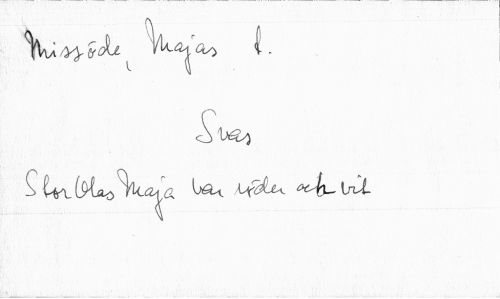 Missöde, Majas t.
Svas
Stor Olas Maja var röder och vit